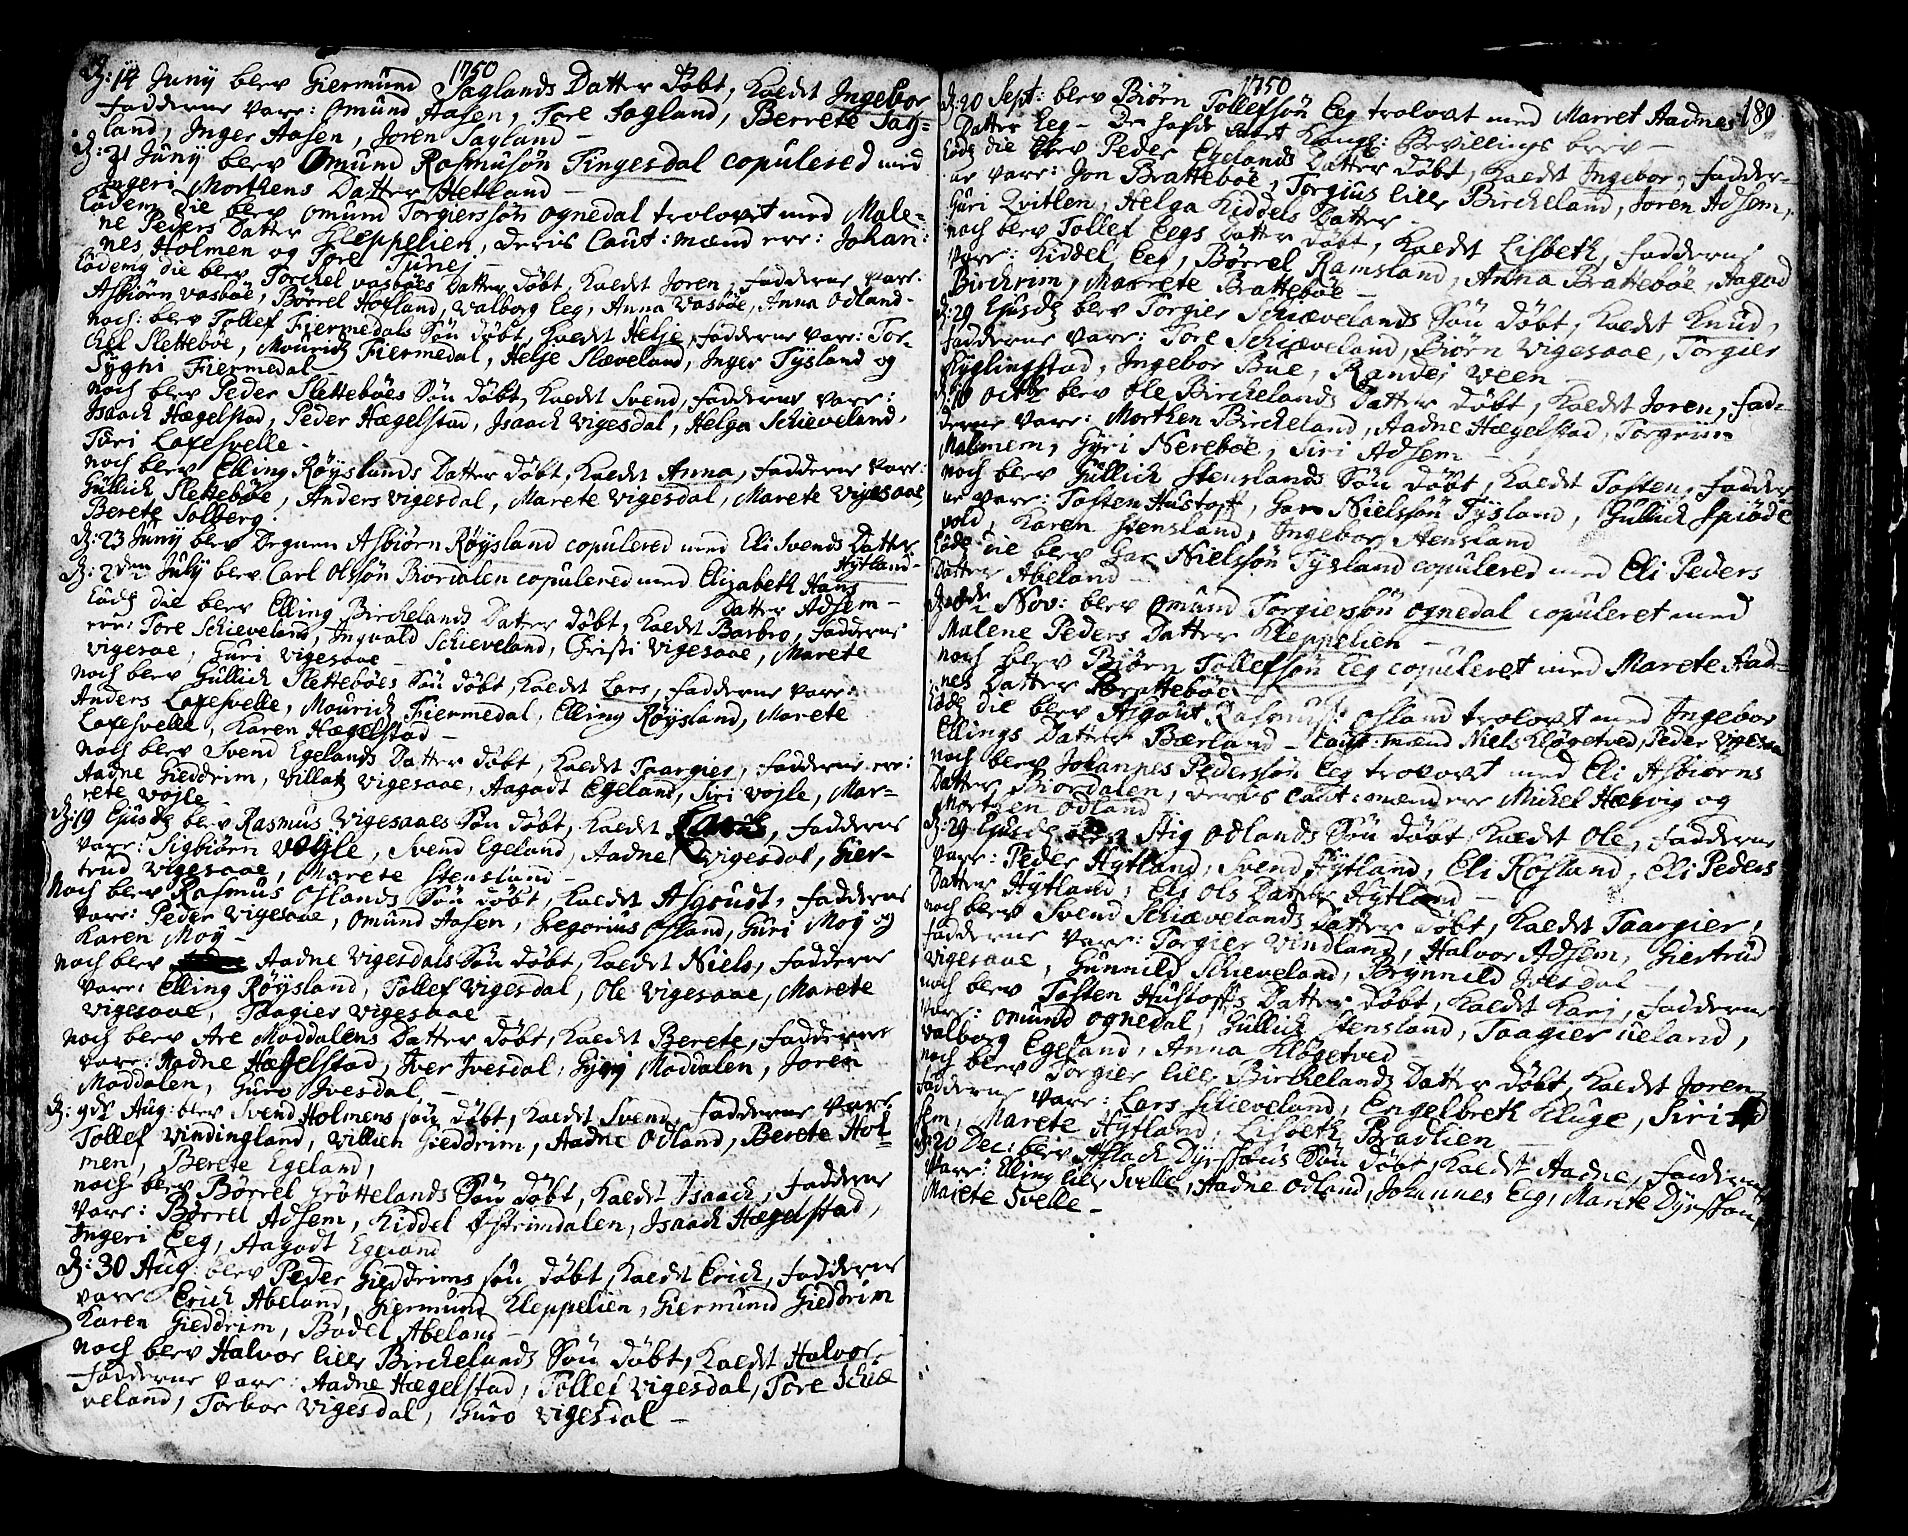 1750
D: 14 Junÿ blev Giermund Saglands Datter döbt, kaldt Ingebor
Fadderne vare: Omund Aasen, Tore Sagland, Berrete Sag-
land, Inger Aasen, Joren Sagland –
D: 21 Junÿ blev Omund Rasmusøn Tingesdal copulered med
Ingeri Morthens Datter Hetland –
Eodem die blev Omund Torgiersøn Ognedal trolovet med Male-
ne Peders Datter Kleppelien, deris Caut: mænd ere: Johan-
nes Holmen og Tore Tunej –
Eodem die blev Torchel vasböes Datter döbt, kaldt Joren, Fadderne vare:
Asbiörn vasböe, Börrel Hofland, Valborg Eeg, Anna vasböe, Anna Odland –
noch: blev Tollef Fiermedals Sön döbt, kaldt Helje, Fadderne vare: Tor-
chel Sletteböe, Mouritz Fiermedal, Helje Slæveland, Inger Tysland og
Sÿghi Fiermedal –
noch blev Peder Sletteböes Sön döbt, kaldt Svend, Fadderne vare:
Isaach Hægelstad, Peder Hægelstad, Isaach Vigesdal, Helga Schieveland,
Turi Laxesvelle –
noch blev Elling Röyslands Datter döbt, kaldt Anna, Fadderne vare:
Gullich Sletteböe, Anders Vigesdal, Marete Vigesdal, Marete Vigesaae,
Berete Solberg.
D: 23 Junÿ blev Degnen Asbiörn Röysland copulered med Eli Svends Datter
Hÿtland –
D: 2den Julÿ blev Carl Olssön Biordalen copulered med Elizabeth Hans
Datter Adsem –
Eodz die blev Elling Birchelands Datter döbt, kaldt Barbro, Fadderne
ere: Tore Schieveland, Ingvald Schieveland, Christi Vigesaae, Marete
Vigesae, Guri Vigesaae –
noch blev Gullich Sletteböes Sön döbt, kaldt Lars, Fadderne vare:
Anders Laxesvelle, Mourich Fiermedal, Elling Röysland, Marete
Laxesvelle, Karen Hægelstad –
noch blev Svend Egelands Datter döbt, kaldt Taargier, Fadderne ere:
Aadne Gieddrim, Villatz Vigesaae, Aagadt Egeland, Siri Vojle, Mar-
rete Vojle –
D: 19 Ejusdz blev Rasmus Vigesaaes Sön döbt, kaldt Fadderne
vare: Sigbiörn Vojle, Svend Egeland, Aadne Vigesdal, Gier-
trud Vigesaae, Marete Stensland –
Noch blev Rasmus Oslands Sön döbt, kaldt Asgoudt, Fadderne
vare: Peder Vigesaae, Omund Aasen, Gregorius Osland, Guri Moÿ og
Karen Moÿ –
noch blev Aadne Vigesdals Sön döbt, kaldt Niels, Fadderne
vare: Elling Röysland, Tollef Vigesdal, Ole Vigesaae, Marete
Vigesaae, Taagier Vigesaae –
noch blev Are Moddalens Datter döbt, kaldt Berete, Fadderne
vare: Aadne Hægelstad, Iver Ivesdal, Gyrij Moddalen, Joren
Moddalen, Guro Ivesdal –
D: 9de Aug: blev Svend Holmens sön döbt, kaldt Svend, Fadderne vare
Tollef Vindingland, Villich Gieddrim, Aadne Odland, Berete Hol-
men, Berete Egeland,
noch blev Börrel Gröttelands Sön döbt, kaldt Isaach, Fadderne
vare: Börrel Adsem, Kiddel Østrimdalen, Isaach Hægelstad,
Ingeri Eeg, Aagadt Egeland
D: 30 Aug: blev Peder Gieddrims sön döbt, kaldt Erich, Fadderne
vare Erich Abeland, Giermund Kleppelien, Giermund Gieddrim
Karen Gieddrim, Bodel Abeland –
noch blev Halvor lille Birchelands Sön döbt, kaldt Halvor,
Fadderne vare: Aadne Hægelstad, Tollef Vigesdal, Tore Schie
veland, Torbor Vigesdal, Guro Vigesdal –
1750
189
D: 20 Sept: blev Biörn Tollefsön Eeg trolovet med Marret Aadnes
Datter Eeg – De hafde Kongl: Bevillings brev –
Eodz die blev Peder Egelands Datter döbt, kaldt Ingebor, Fadder-
ne vare: Jon Bratteböe, Torgius lille Bircheland, Joren Adsem,
Guri Qvitlen, Helga Kiddels Datter –
noch blev Tollef Eegs Datter döbt, kaldt Lisbeth, Fadderne
vare: Kiddel Eeg, Börrel Ramsland, Anna Bratteböe, Aagod
Birchrim, Marrete Bratteböe –
D: 29 Ejusdz blev Torgier Schiævelands Sön döbt, kaldt Knud,
Fadderne vare: Tore Schiæveland, Biörn Vigesaae, Torgier
Ryglingstad, Ingebor Bue, Randej Veen
D: 18 Octbr blev Ole Birchelands Datter döbt, kaldt Joren, Fad-
derne vare: Morthen Bircheland, Aadne Hægelstad, Torgrim
Malmem, Gyri Nereböe, Siri Adsem –
noch blev Gullich Stenslands Sön döbt, kaldt Tosten, Fadder
ne vare: Tosten Hustoft, Nielssön Tysland, Gullich Spiöde
vold, Karen Stensland, Ingebor Stensland
Eodz die blev Nielssön Tysland copulered med Eli Peders
Datter Abeland –
D: Nov: blev Omund Torgiersön Ognedal copuleret med
Malene Peders Datter Kleppelien –
noch blev Biörn Tollefsön Eeg copuleret med Marete Aad-
nes Datter Bratteböe –
Eodz die blev Asgout Rasmus: Osland trolovet med Ingebor
Ellings Datter Bærland – Caut: mænd Niels Klögetved, Peder Vigesaae
noch blev Johannes Pederssön Eeg trolovet med Eli Asbiörns
Datter Biordalen, deris Caut: mænd ere Michel Hæsvig og
Mortzen Odland
D: 29 Ejusdz blev Stig Odlands Sön döbt kaldt Ole, Fadderne
vare: Peder Hÿtland, Svend Hÿtland, Eli Rösland, Eli Peders
Datter Hÿtland, Eli Ols Datter Hÿtland –
noch blev Svend Schiævelands Datter döbt, kaldt Taargier,
Fadderne vare: Torgier Vindland, Halvor Adsem, Giertrud
Vigesaae, Gunnild Schieveland, Brynnild Ivesdal –
noch blev Tosten Hustofts Datter döbt, kaldt Kari, Fadderne
vare: Omund Ognedal, Gullich Stensland, Taagier Ueland,
Valborg Egeland, Anna Klögetved –
noch blev Torgier lille Birchelands Datter döbt, kaldt Joren,
Fadderne vare: Lars Schieveland, Engelbreth Kluge, Siri Ad
sem, Marete Hÿtland, Lisbeth Bradlien –
D: 20 Dec: blev Aslach Dyrskous Sön döbt, kaldt Aadne, Fadderne
vare: Elling lille Svelle, Aadne Odland, Johannes Eeg, Marete Dyrskou,
Marete Svelle –